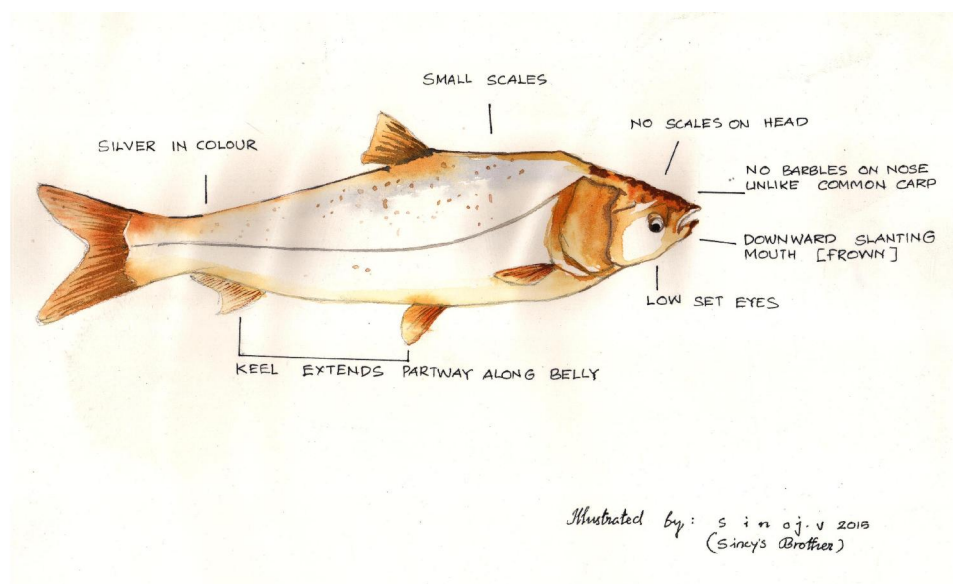 SMALL SCALES
NO SCALES ON HEAD
SILVER IN COLOUR
NO BARBLES ON NOSE
UNLIKE COMMON CARP
DOWNWARD SLANTING
MOUTH [FROWN]
LOW SET EYES
KEEL EXTENDS PARTWAY ALONG BELLY
Illustrated by: sinoj.v 2015
(Sincy's Brother)